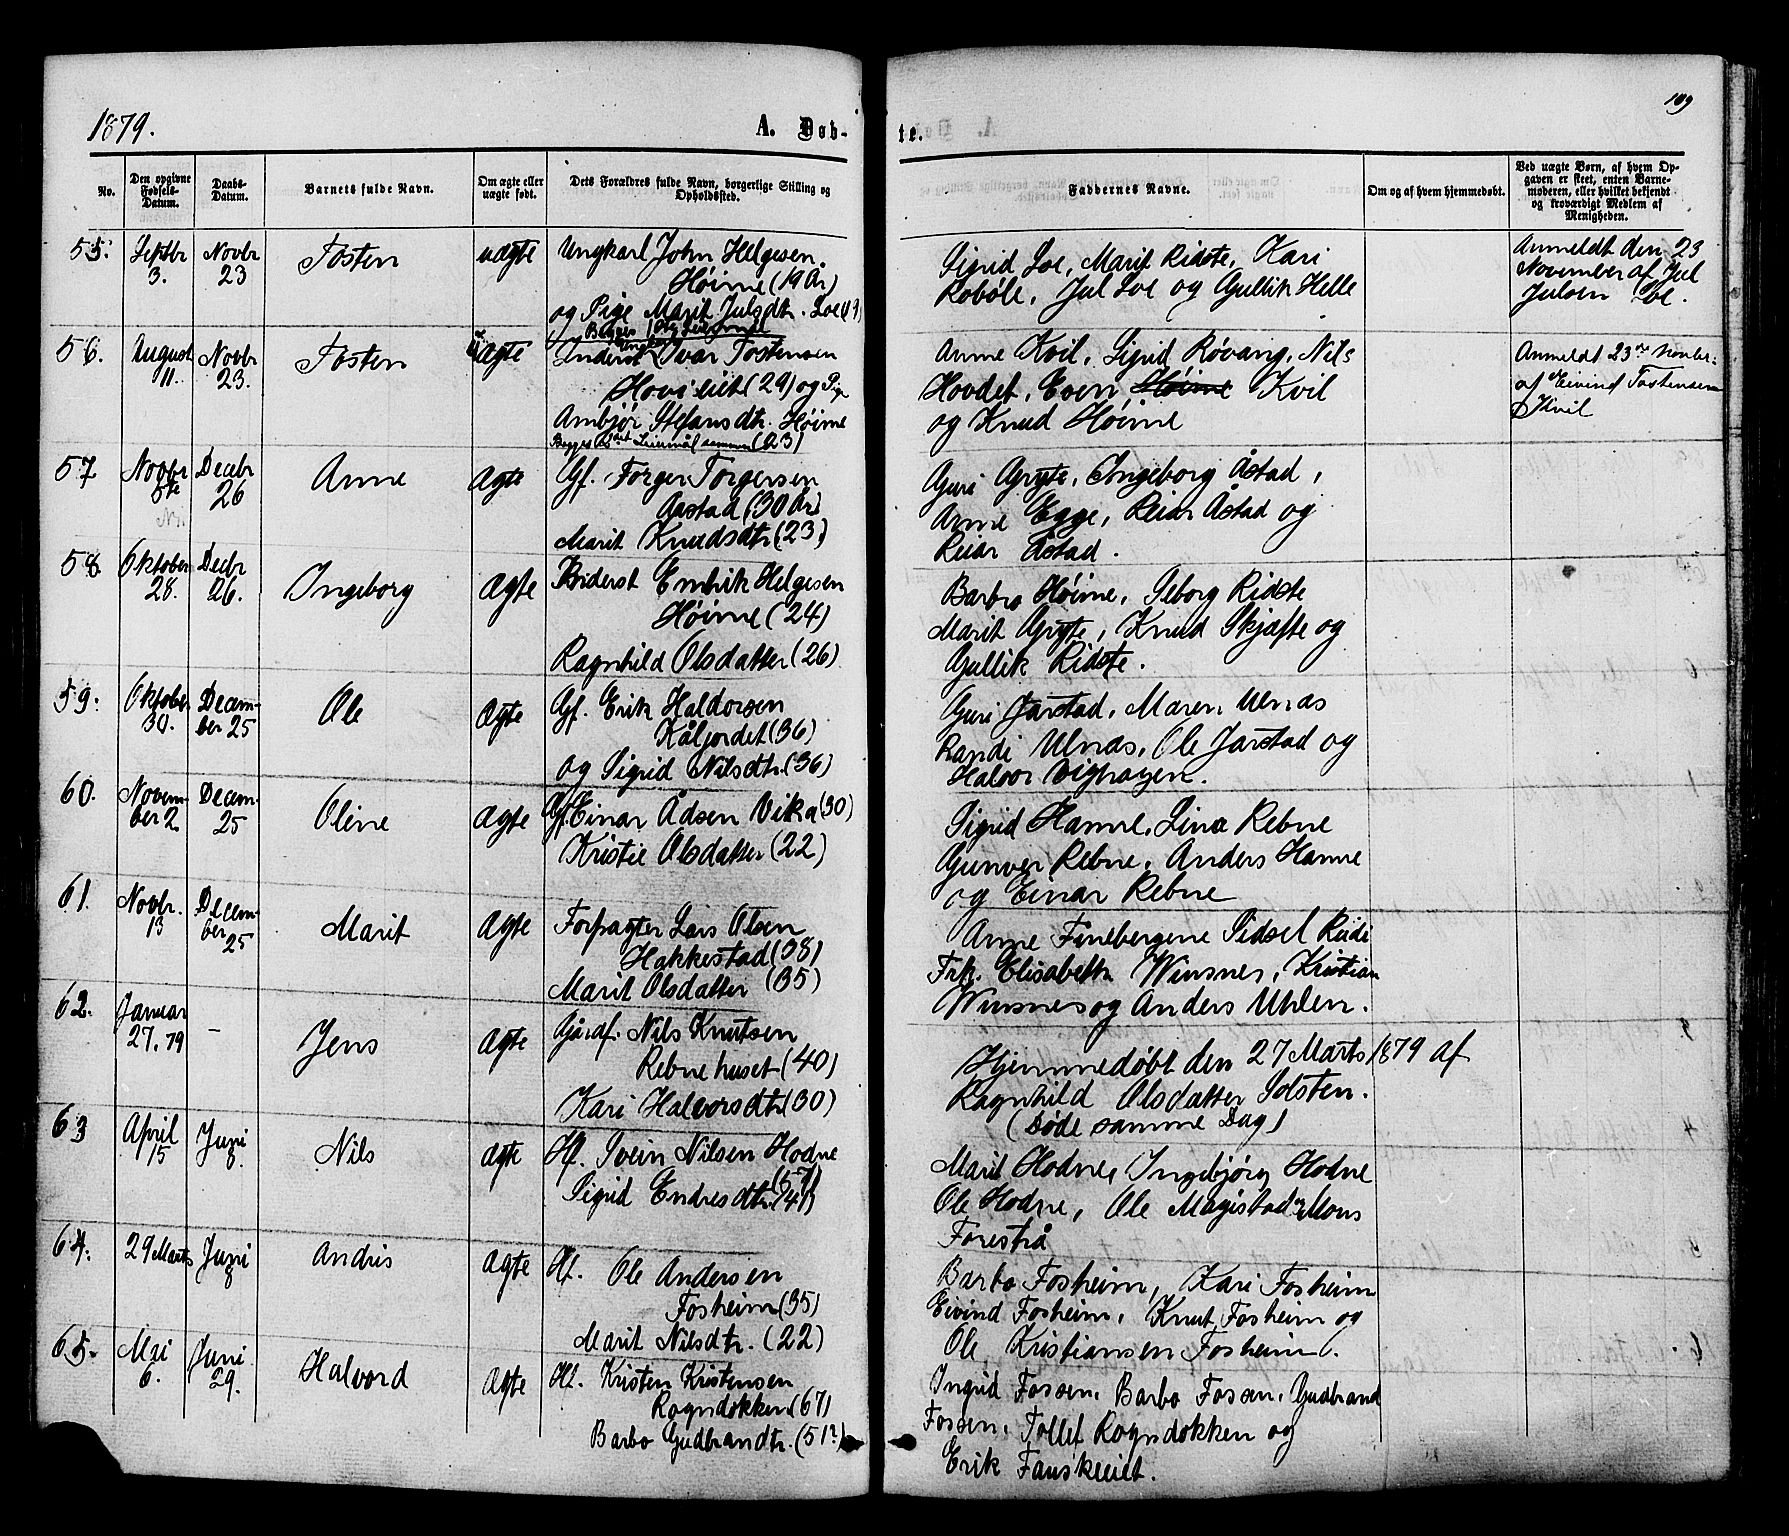 1879.
A. Døb-
te.
109
No.
Den opgivne Fødsels-Datum.
Daabs-Datum.
Barnets fulde Navn.
Om ægte eller uægte født.
Dets Forældres fulde Navn, borgerlige Stilling og Opholdssted.
Faddernes Navne.
Om og af hvem hjemmedøbt.
Ved uægte Børn, af hvem Op-
gaven er skeet, enten Barne-
moderen, eller hvilket bekjendt
og troværdigt Medlem af
Menigheden.
55. Septbr 3. Novbr 23 Tosten uægte Ungkarl John Helgesen
Høime (19 År)
og Pige Marit Julsdtr. Loe (19)
Begges 1ste Leiermål
Sigrid Loe, Marit Ridste, Kari
Robøle, Jul Loe og Gullik Helle
Anmeldt den 23
November af Jul
Julsen Loe.
56. August 11. Novbr 23. Tosten Uægte Inderst Ungkarl Ivar Tostensen
Hovseiet (29) og Pige
Ambjør Stefansdtr. Høime
(23)
Anne Kvil, Sigrid Røvang, Nils
Hovdet, Even Høime Kvil
og Knud Høime
Anmeldt 23de Novber
af Eivind Tostensen
Kvil
57 Novbr 8te Decbr 26 Anne Ægte Gf. Torger Torgersen
Aastad (30 År)
Marit Knudsdtr (23)
Guri Gryte, Ingeborg Åstad,
Anne Egge, Reiar Åstad og
Reiar Åstad.
58 Oktober 28. Decbr 26. Ingeborg Ægte Embrik Helgesen
Høime (24)
Ragnhild Olsdatter (26)
Barbro Høime, Seborg Ridste
Marit Gryte, Knud Skjæfte og
Gullik Ridste.
59. Oktober 30. Decem-
ber 25 Ole Ægte Gf. Erik Haldorsen
Kåljordet (36)
og Sigrid Nilsdtr. (36)
Guri Jarstad, Maren Ulnæs
Randi Ulnæs, Ole Jarstad og
Halvor Vighagen.
60. Novem-
ber 2 Decem-
25 Oline Ægte Gf. Einar Ådsen Vika (30)
Kristie Olsdatter (22)
Sigrid Hamre, Lina Rebne
Gunver Rebne, Anders Hamre
og Einar Rebne
61. Novbr. 13 Decem-
ber 25 Marit Ægte Forpagter Lars Olsen
Hakkestad (38)
Marit Olsdatter (35)
Anne Finebergene Sidsel Rudi
Frk. Elisabeth Winsnes, Kristian
Winsnes og Anders Uhlen.
62. Januar 27. 79 – Jens Ægte Gårdf. Nils Knutsen
Rebnehuset (40)
Kari Halvorsdtr (30)
Hjemmedøbt den 27 Marts 1879 af
Ragnhild Olsdatter Solsten.
(Døde samme Dag)
63 April 15 Juni 8. Nils Ægte Hf. Svein Nilsen Hodne
(57)
Sigrid Endresdtr. (41)
Marit Hodne, Ingebjørg Hodne
Ole Hodne, Ole Magistad og Mons
Forestrå
64. 29 Marts Juni 8 Andris Ægte Hf. Ole Andersen
Fosheim (35)
Marit Nilsdtr. (22)
Barbo Fosheim, Kari Fosheim
Eivind Fosheim, Knut Fosheim og
Ole Kristiansen Fosheim.
65. Mai 6. Juni 29. Halvord Ægte Hf. Kristen Kristensen
Rogndokken (67)
Barbo Gudbrandtr. (51?)
Ingrid Fossen, Barbo Fossen, Gudbrand
Fossen, Tollef Rogndokken og
Erik Fauskeeiet.